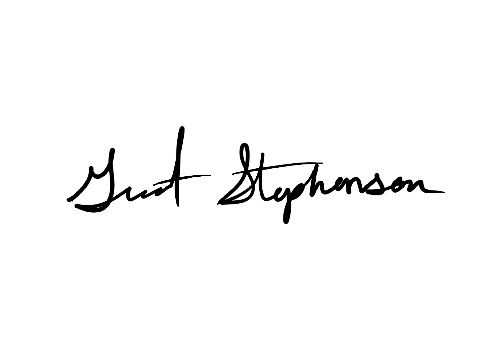 Grant Stephenson